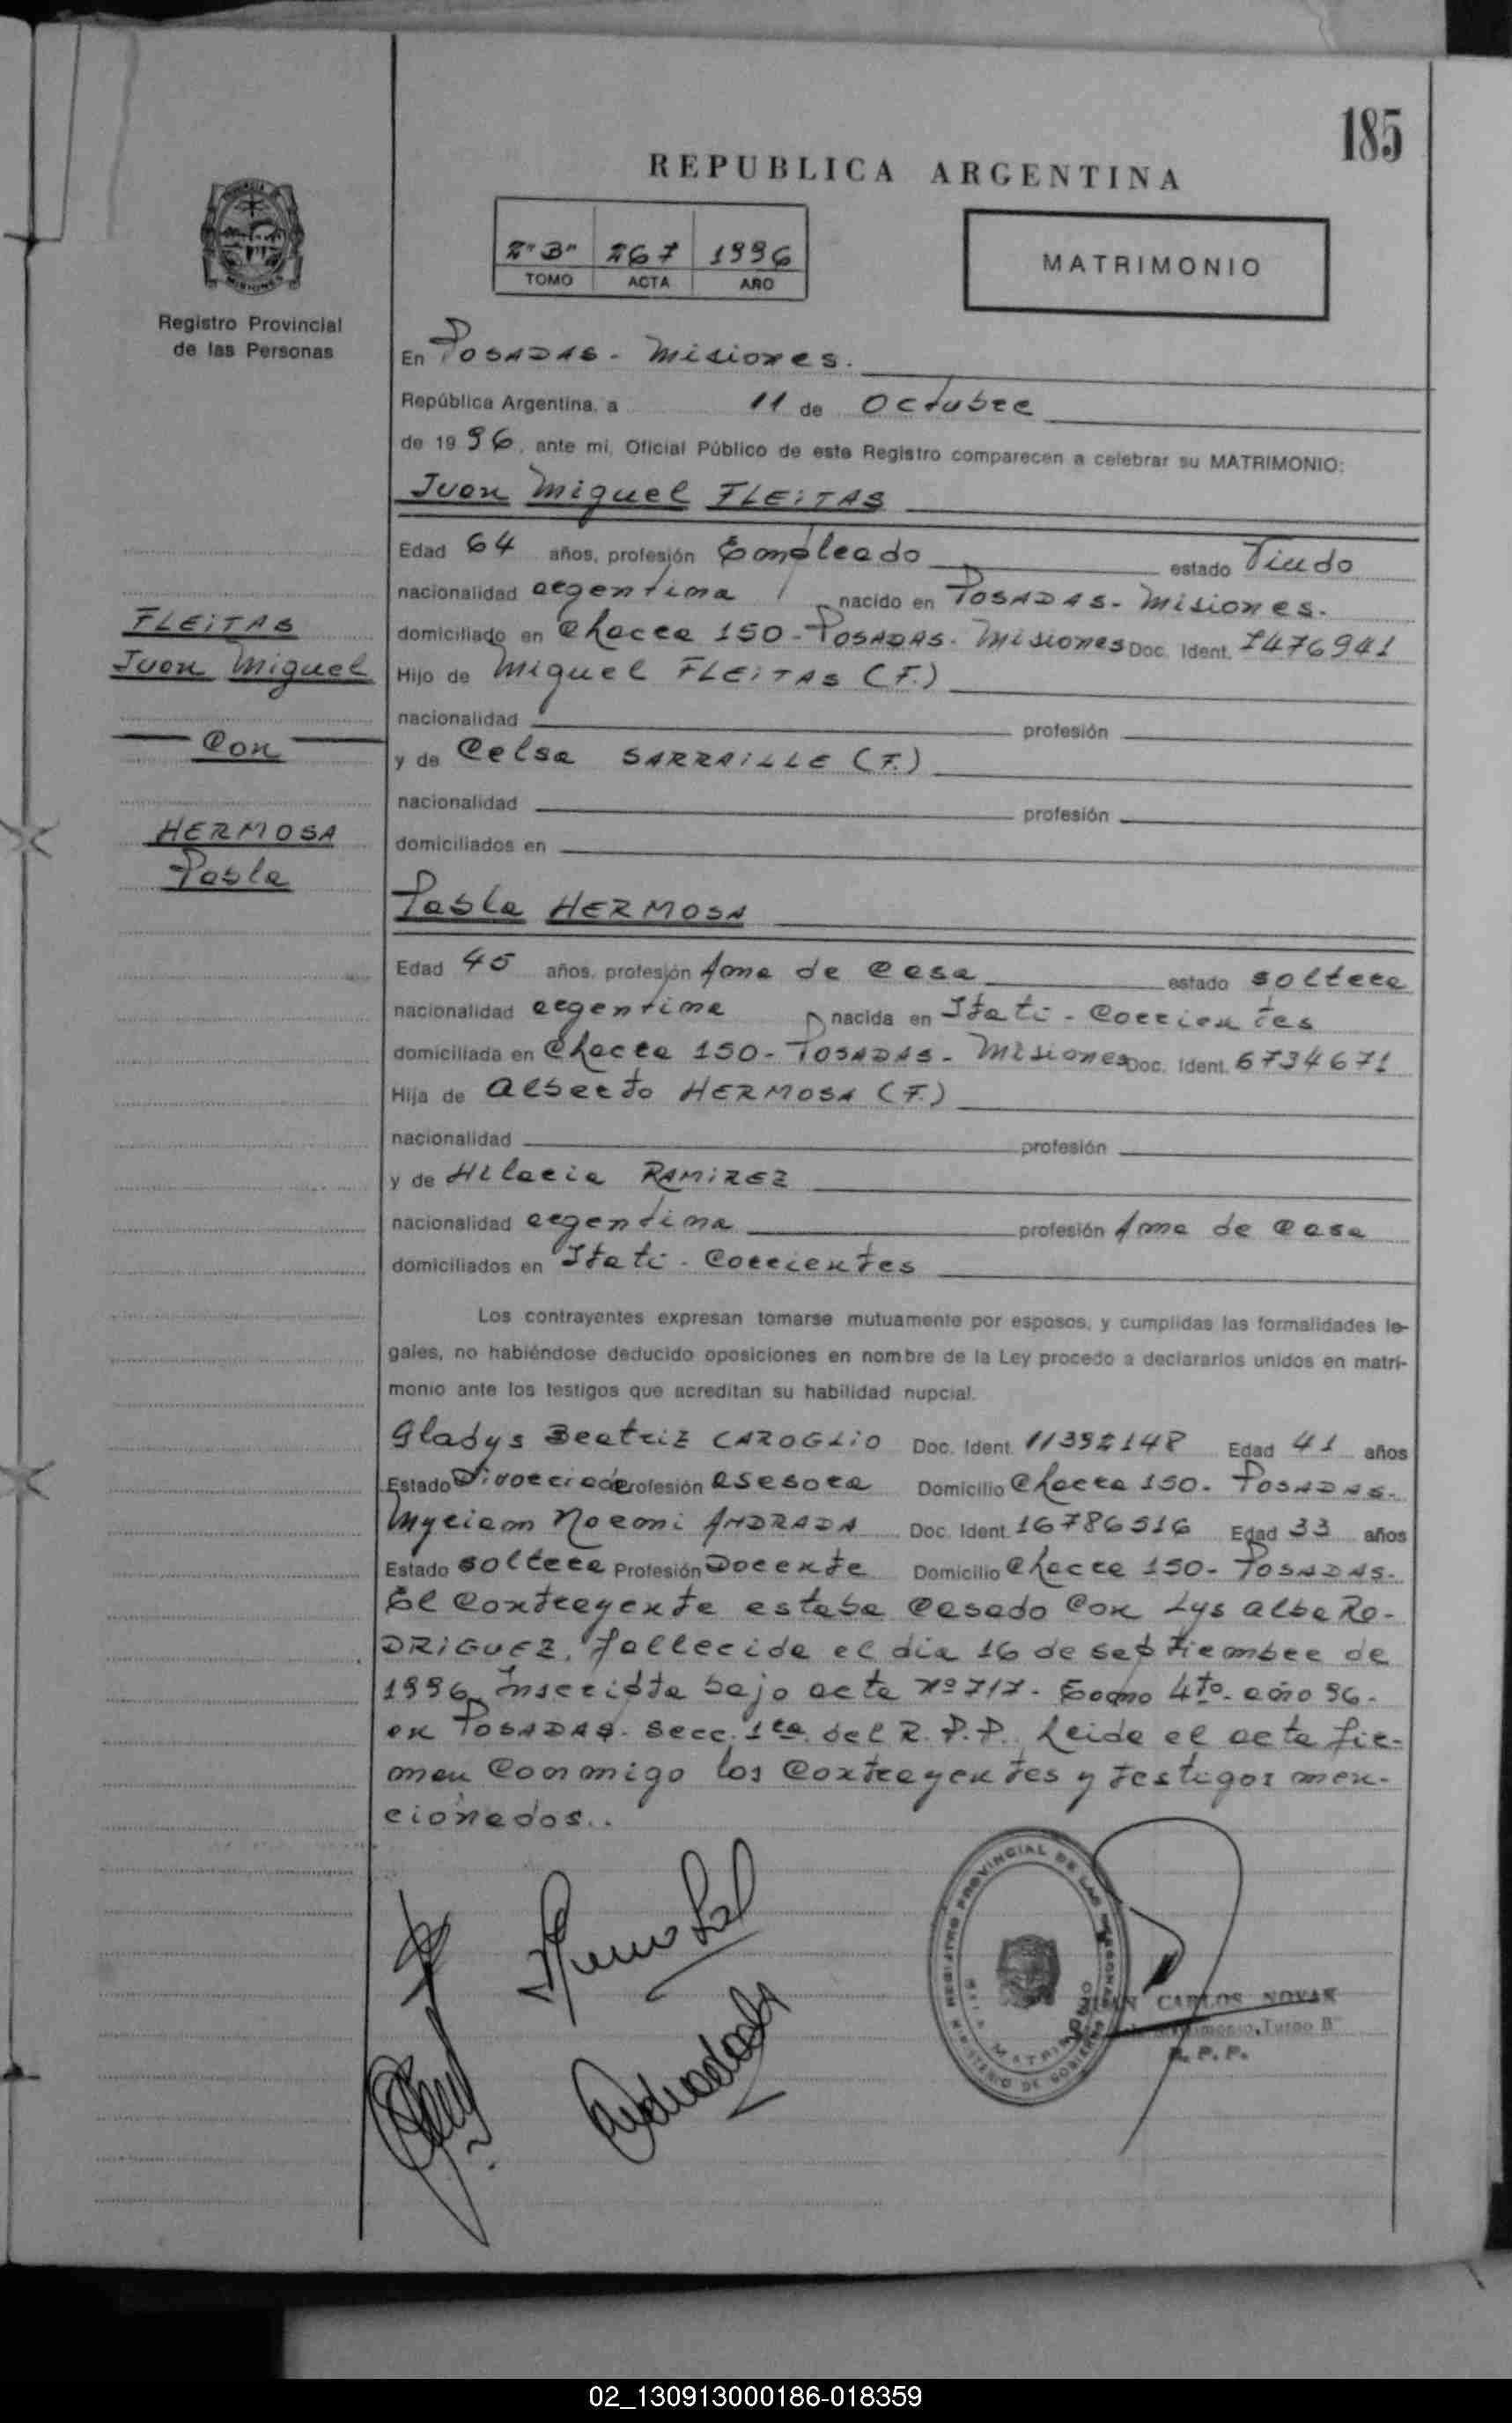 185
REPUBLICA ARGENTINA
2"B" 267 1996
TOMO ACTA AÑO
MATRIMONIO
Registro Provincial
de las Personas
En Posadas - Misiones.
República Argentina, a 11 de Octubre
de 1996, ante mi, Oficial Público de este Registro comparecen a celebrar su MATRIMONIO:
Juan Miguel FLEiTAS
Edad 64 años, profesión Empleado estado Viudo
nacionalidad argentina nacido en POSADAS - Misiones.
domiciliado en Chacra 150 - POSADAS - Misiones Doc. Ident. 7476941
Hijo de Miguel FLEiTAS (F.)
nacionalidad profesión
y de Celsa SARRAiLLE (F.)
nacionalidad profesión
domiciliados en
FLEiTAS
Juan Miguel
Con
HERMOSA
Pabla
Pabla HERMOSA
Edad 45 años, profesión Ama de Casa estado soltera
nacionalidad argentina nacida en Itati - Corrientes
domiciliada en Chacra 150 - POSADAS - Misiones Doc. Ident. 6734671
Hija de Alberto HERMOSA (F.)
nacionalidad profesión
y de Hilaria RAMiREZ
nacionalidad argentina profesión Ama de Casa
domiciliados en Itati - Corrientes
Los contrayentes expresan tomarse mutuamente por esposos, y cumplidas las formalidades le-
gales, no habiéndose deducido oposiciones en nombre de la Ley procedo a declararlos unidos en matri-
monio ante los testigos que acreditan su habilidad nupcial.
Gladys Beatriz CAROGLiO Doc. Ident. 11392148 Edad 41 años
Estado Divorciada Profesión asesora Domicilio Chacra 150 - POSADAS -
Myriam Noemi ANDRADA Doc. Ident. 16786516 Edad 33 años
Estado soltera Profesión Docente Domicilio Chacra 150 - POSADAS -
El Contrayente estaba Casado Con Lys Alba RO-
DRiGUEZ, fallecida el dia 16 de septiembre de
1996, Inscripta bajo acta nº 717 - Tomo 4to. año 96 -
en POSADAS - Secc. 1ra. del R.P.P. Leida el acta fir-
man Conmigo los Contrayentes y testigos men-
cionados..
REGISTRO PROVINCIAL DE LAS PERSONAS
MINISTERIO DE GOBIERNO
JUAN CARLOS NOVAK
Matrimonio, Turno B"
R. P. P.
02_130913000186-018359